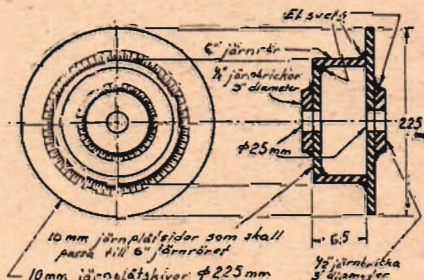 El svets
6" järnrör
½" järnbrickor
3" diameter
φ25mm
225
6,5
10 mm järnplåtsidor som skall
passa till 6" järnröret
10mm järnplåtskivor φ 225 mm
½" järnbricka
3" diameter